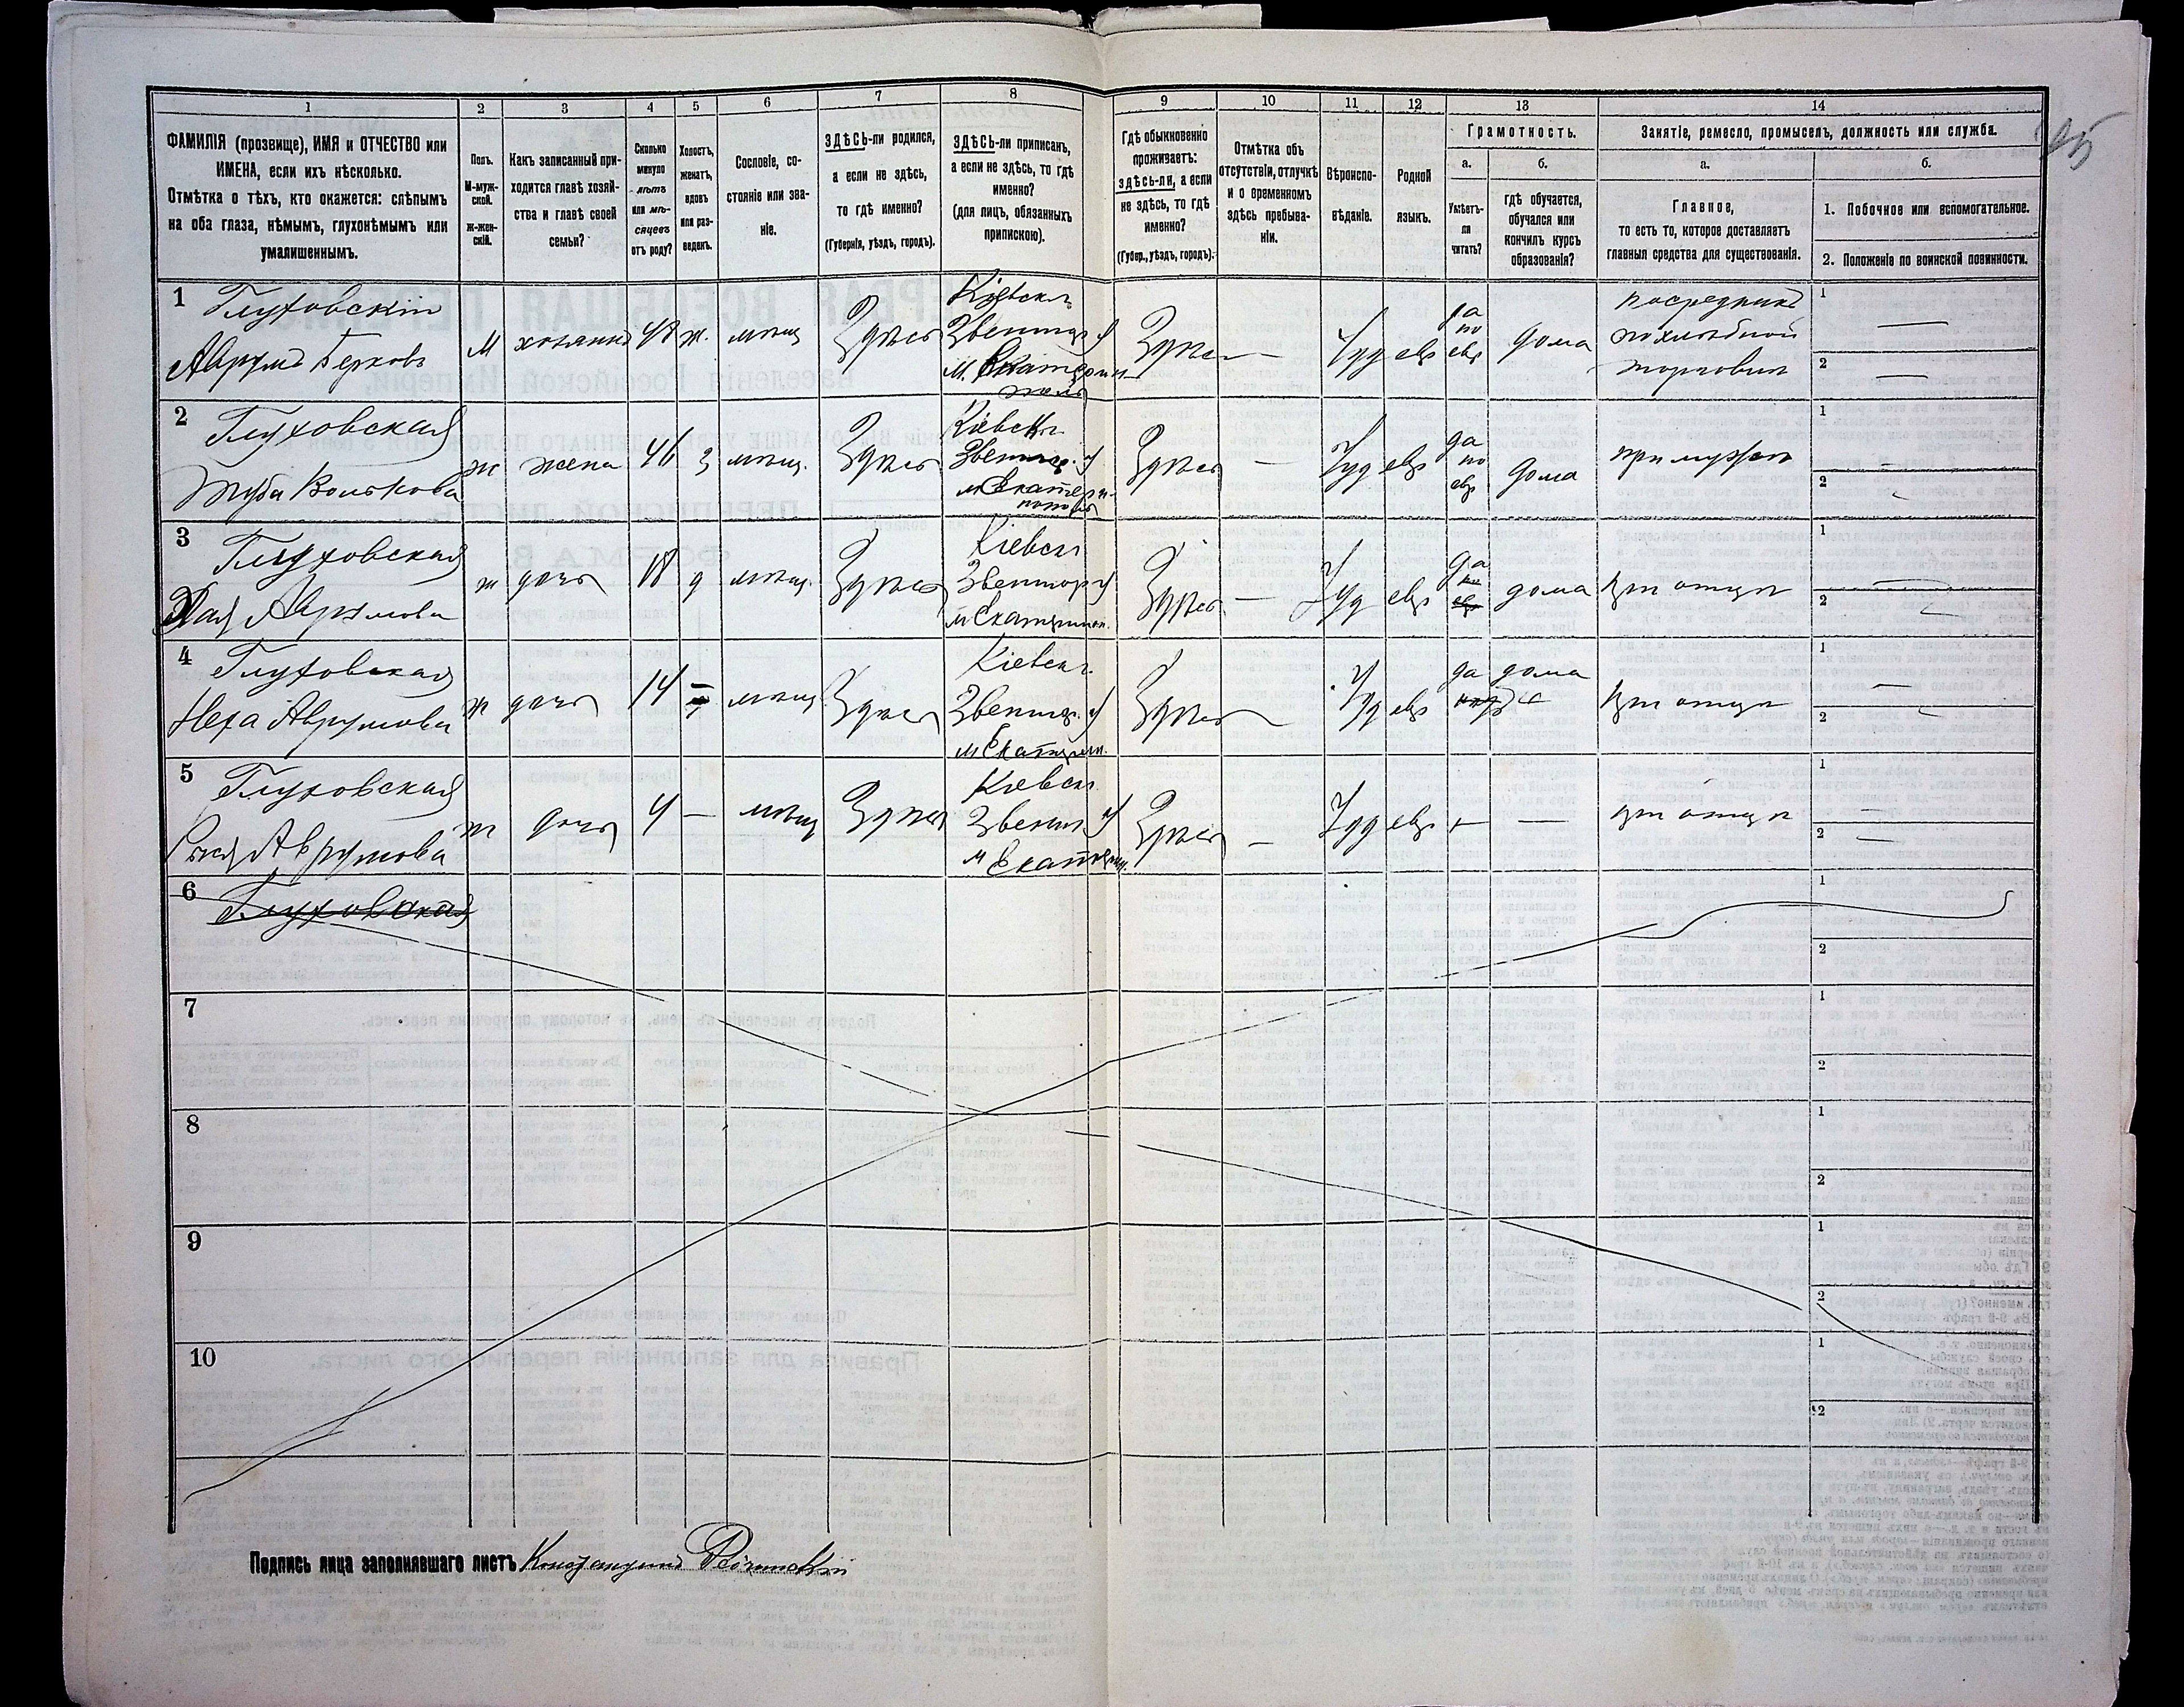 1 2 3 4 5 6 7 8 9 10 11 12 13 14
ФАМИЛІЯ (прозвище), ИМЯ и ОТЧЕСТВО или
ИМЕНА, если ихъ нѣсколько.
Отмѣтка о тѣхъ, кто окажется: слѣпымъ
на оба глаза, нѣмымъ, глухонѣмымъ или
умалишеннымъ.
Полъ.
М-муж-
ской.
Ж-жен-
скій.
Какъ записанный при-
ходится главѣ хозяй-
ства и главѣ своей
семьи?
Сколько
минуло
лѣтъ
или мѣ-
сяцевъ
отъ роду?
Холостъ,
женатъ,
вдовъ
или раз-
веденъ.
Сословіе, со-
стояніе или зва-
ніе.
ЗДѢСЬ-ли родился,
а если не здѣсь,
то гдѣ именно?
(Губернія, уѣздъ, городъ).
ЗДѢСЬ-ли приписанъ,
а если не здѣсь, то гдѣ
именно?
(для лицъ, обязанныхъ
припискою).
Гдѣ обыкновенно
проживаетъ:
здѣсь-ли, а если
не здѣсь, то гдѣ
именно?
(Губер., уѣздъ, городъ).
Отмѣтка объ
отсутствіи, отлучкѣ
и о временномъ
здѣсь пребыва-
ніи.
Вѣроиспо-
вѣданіе.
Родной
языкъ.
Грамотность.
а.
Умѣетъ-
ли
читать?
б.
гдѣ обучается,
обучался или
кончилъ курсъ
образованія?
Занятіе, ремесло, промыселъ, должность или служба.
а.
Главное,
то есть то, которое доставляетъ
главныя средства для существованія.
б.
1. Побочное или вспомогательное.
2. Положеніе по воинской повинности.
25
1
Глуховскій
Аврумъ Берковъ
М хозяинъ 48 ж. мѣщ Здѣсь
Кіевск.
Звениг. у
м. Екатерин-
поль
Здѣсь — Іуд евр
да
по
евр
дома
посредникъ
по хлѣбной
торговли
1 —
2 —
2
Глуховская
Волькова
ж жена 46 з мѣщ. Здѣсь
Кіевск.
Звениг. у
м Екатери-
поль
Здѣсь — Іуд евр
да
по
евр
дома
при мужѣ
1 —
2 —
3
Глуховская
Хая Аврумова
ж дочь 18 д мѣщ. Здѣсь
Кіевск
Звенигор у
м Екатерин.
Здѣсь — Іуд евр
да
по
евр
дома
при отцѣ
1 —
2 —
4
Глуховская
Неха Аврумова
ж дочь 14 — мѣщ. Здѣсь
Кіевск.
Звениг. у
м Екатерин.
Здѣсь — Іуд евр
да дома
при отцѣ
1 —
2 —
5
Глуховская
Аврумова
ж дочь 4 — мѣщ Здѣсь
Кіевск
Звениг у
м Екатерин.
Здѣсь — Іуд евр — —
при отцѣ
1 —
2 —
6
Глуховская
1
2
7
1
2
8
1
2
9
1
2
10
1
2
Подпись лица заполнявшаго листъ Константинъ